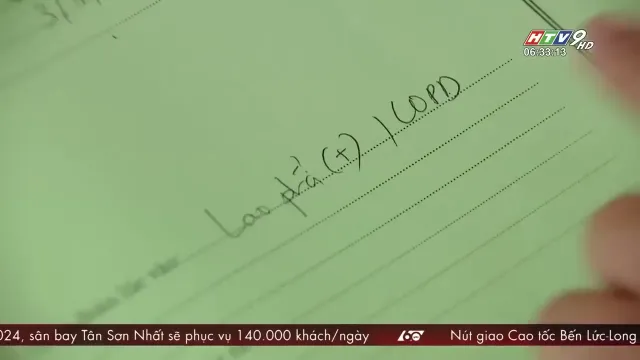 HTV9 HD
06:33:13
Lao phổi (+) / COPD
024, sân bay Tân Sơn Nhất sẽ phục vụ 140.000 khách/ngày
60
Nút giao Cao tốc Bến Lức-Long